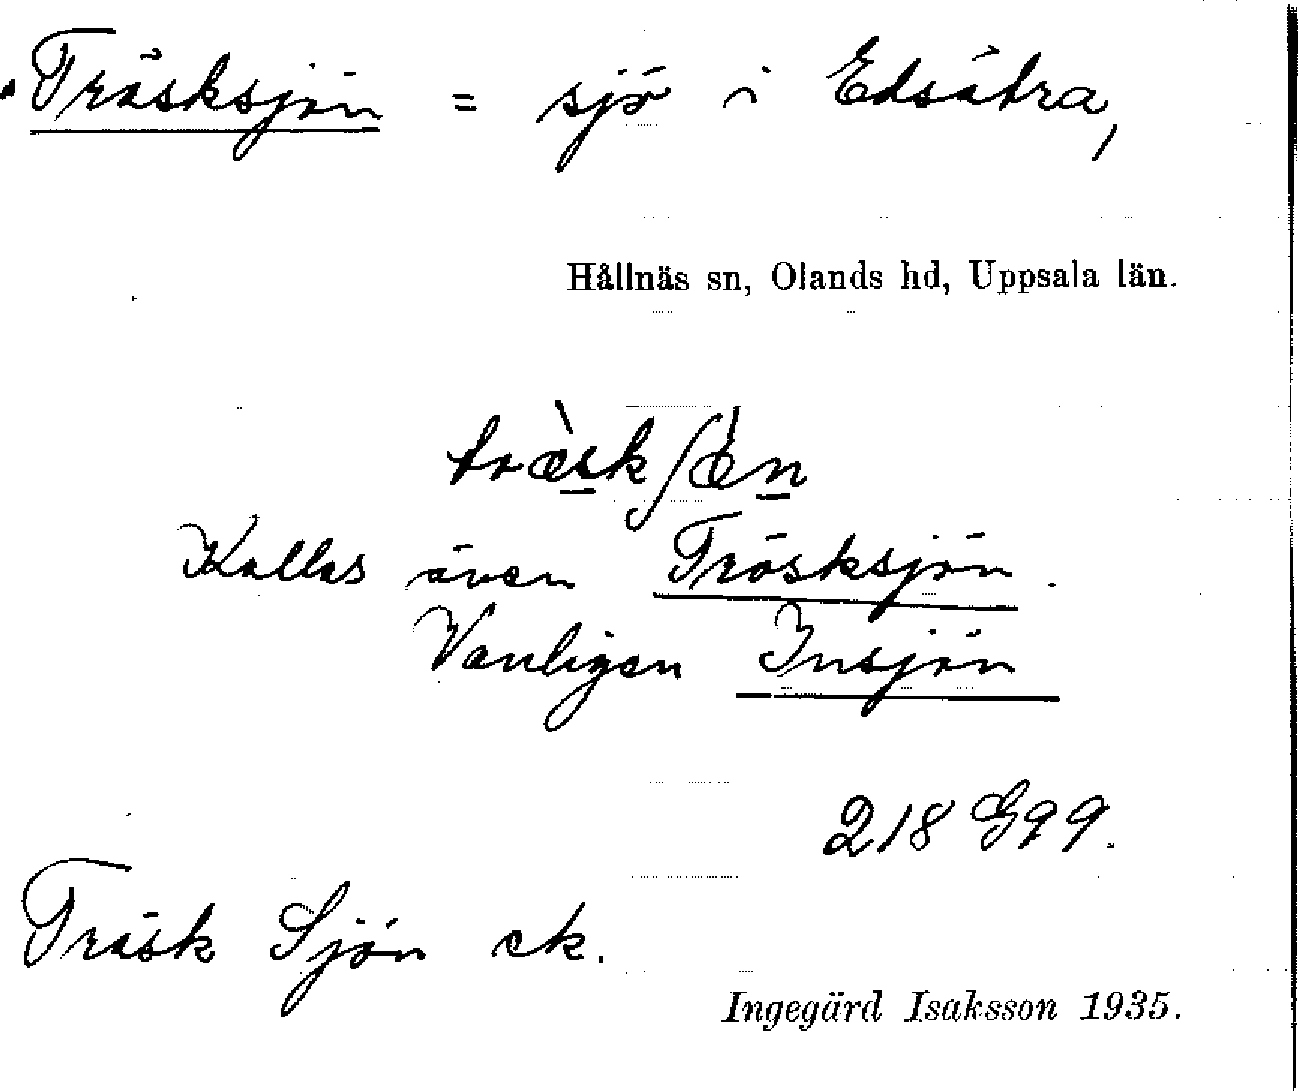 Träsksjön = sjö i Edsätra,
Hållnäs sn, Olands hd, Uppsala län.
Kallas även Trösksjön.
Vanligen Insjön
218 G99.
Träsk Sjön ek.
Ingegärd Isaksson 1935.